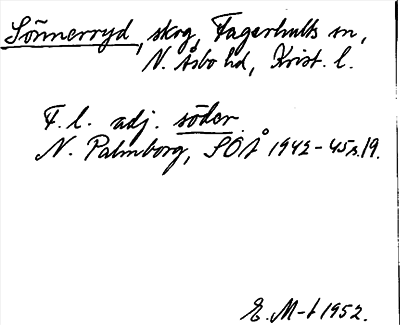 Sönnerryd, skog, Fagerhults sn,
N. Åsbo hd, Krist. l.
F. l. adj. söder.
N. Palmborg, SOÅ 1942-45 s. 19.
E. M-t 1952.